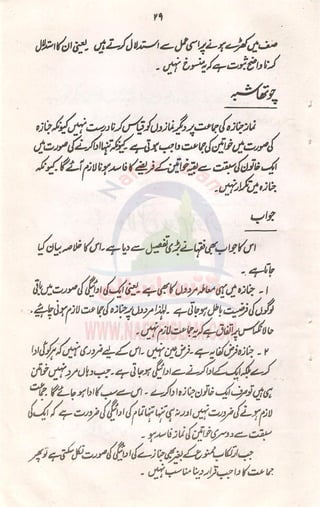 ۲۹
صف میں کھڑے ہونے پر اسی عمل سے استدلال کرتے ہیں یعنی ان کا استدلال
کرنا واضح ثبوت ہے کہ یہ منسوخ نہیں۔
چوتھا شبہ
نماز جنازہ کی جماعت پر دیگر نمازوں کو قیاس کرنا درست نہیں کیونکہ جنازہ
کی صورت میں خواتین کی جماعت واجب ہوتی ہے کیونکہ تنہا ادا کرنے کی صورت میں
ایک خاتون کی سبقت سے بقیہ خواتین کے فریضے کا فاسد ہونا لازم آئے گا۔ کیونکہ
جنازہ میں تکرار نہیں۔
جواب
اس کا جواب بھی فقہا نے بڑی تفصیل سے دیا ہے۔ اس کا خلاصہ بیان کیا
جاتا ہے۔
۱۔ جنازہ میں یہی معاملہ مردوں کا بھی ہے یعنی ایک کی ادائیگی کی صورت میں باقی
لوگوں کی فرضیت باطل ہو جاتی ہے۔ لہذا مردوں پر جنازہ کی جماعت لازم ہونی چاہئے،
حالانکہ اس پر اتفاق ہے کہ یہ جماعت لازم نہیں۔
۲۔ جنازہ فرض کفایہ ہے، فرض عین نہیں۔ اس کے لیے ضروری نہیں کہ ہر کوئی ادا
کرے بلکہ ایک کے ادا کرنے سے ادائیگی ہو جاتی ہے۔ جب وہاں مرد نہیں خواتین
ہی ہیں تو صرف ایک خاتون جنازہ ادا کرے۔ اس سے سب کا ادا ہو جائے گا جماعت
لازم ہونے کی ضرورت نہیں اور نہ ہی تنہا تنہا تمام کی ادائیگی کی ضرورت ہے کہ ایک کی
سبقت سے دوسری خواتین کی نماز فاسد ہو۔
جب ارتکاب ممنوع کے بغیر بھی جنازے کی ادائیگی کی صورت نکل سکتی ہے تو پھر
جماعت کا واجب قرار دینا مناسب نہیں۔